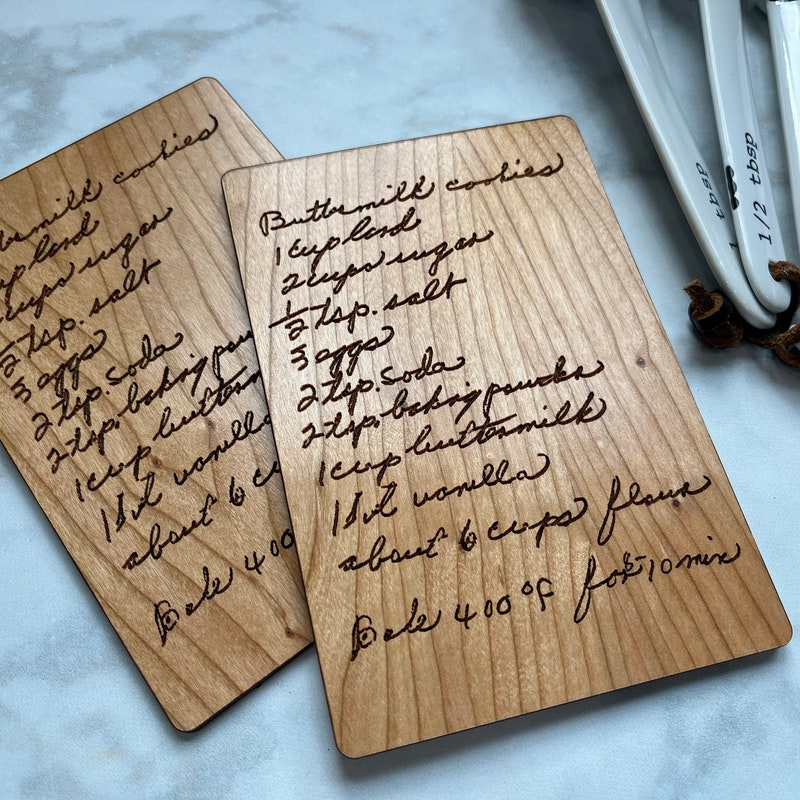 Buttermilk cookies
1 cup lard
2 cups sugar
1/2 tsp. salt
3 eggs
2 tsp. soda
2 tsp. baking powder
1 cup buttermilk
1 vanilla
about 6 cups flour
Bake 400°F for 10 min
ermilk cookies
up lard
cups sugar
1/2 tsp. salt
3 eggs
2 tsp. soda
2 tsp. baking pow
1 cup butterm
1 vanilla
about 6 cu
Bake 400
tbsp
1/2 tbsp